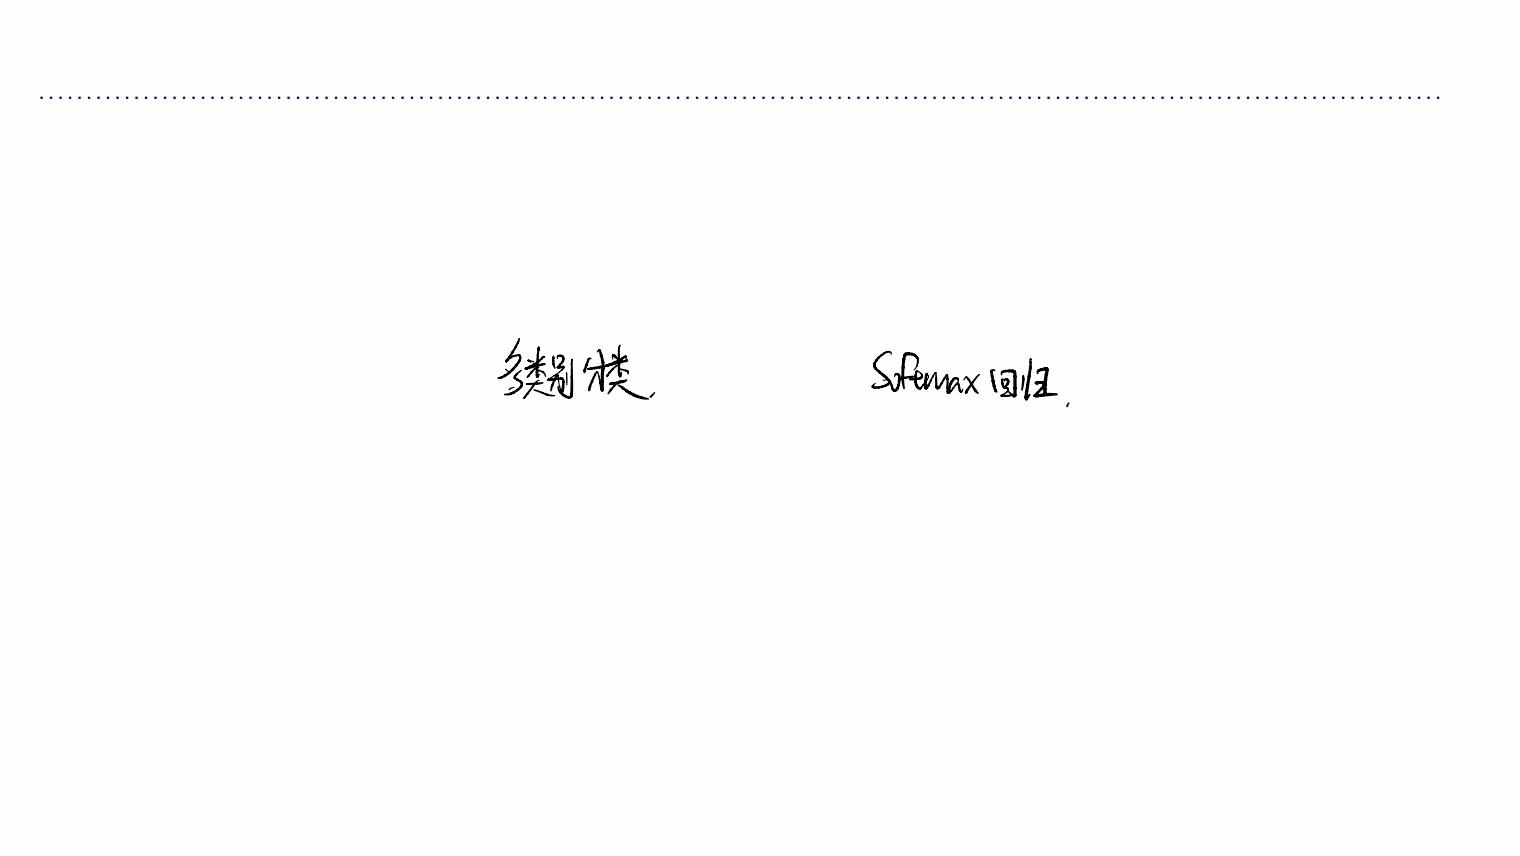 多类别分类. Sofemax 回归.